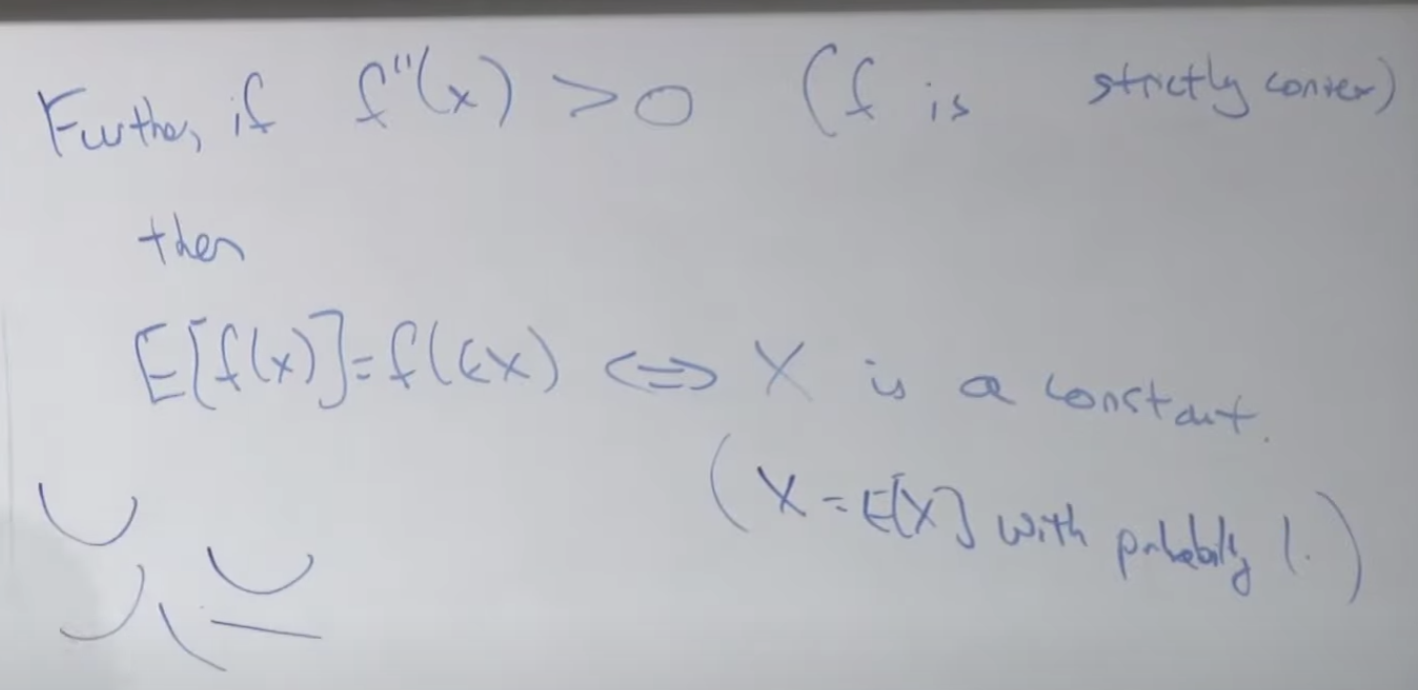 Further, if f''(x) > 0 (f is strictly convex)
then
E[f(x)] = f(EX) <=> X is a constant.
(X = E[X] with probability 1.)